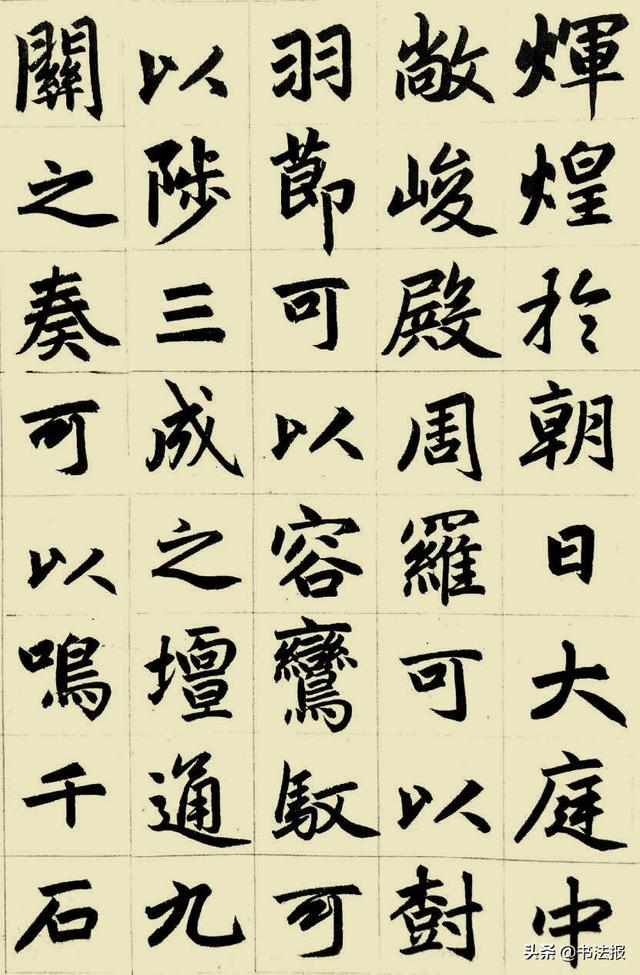 煇煌於朝日大庭中
敞峻殿周羅可以樹
羽節可以容鸞馭可
以陟三成之壇通九
關之奏可以鳴千石
头条 @书法报